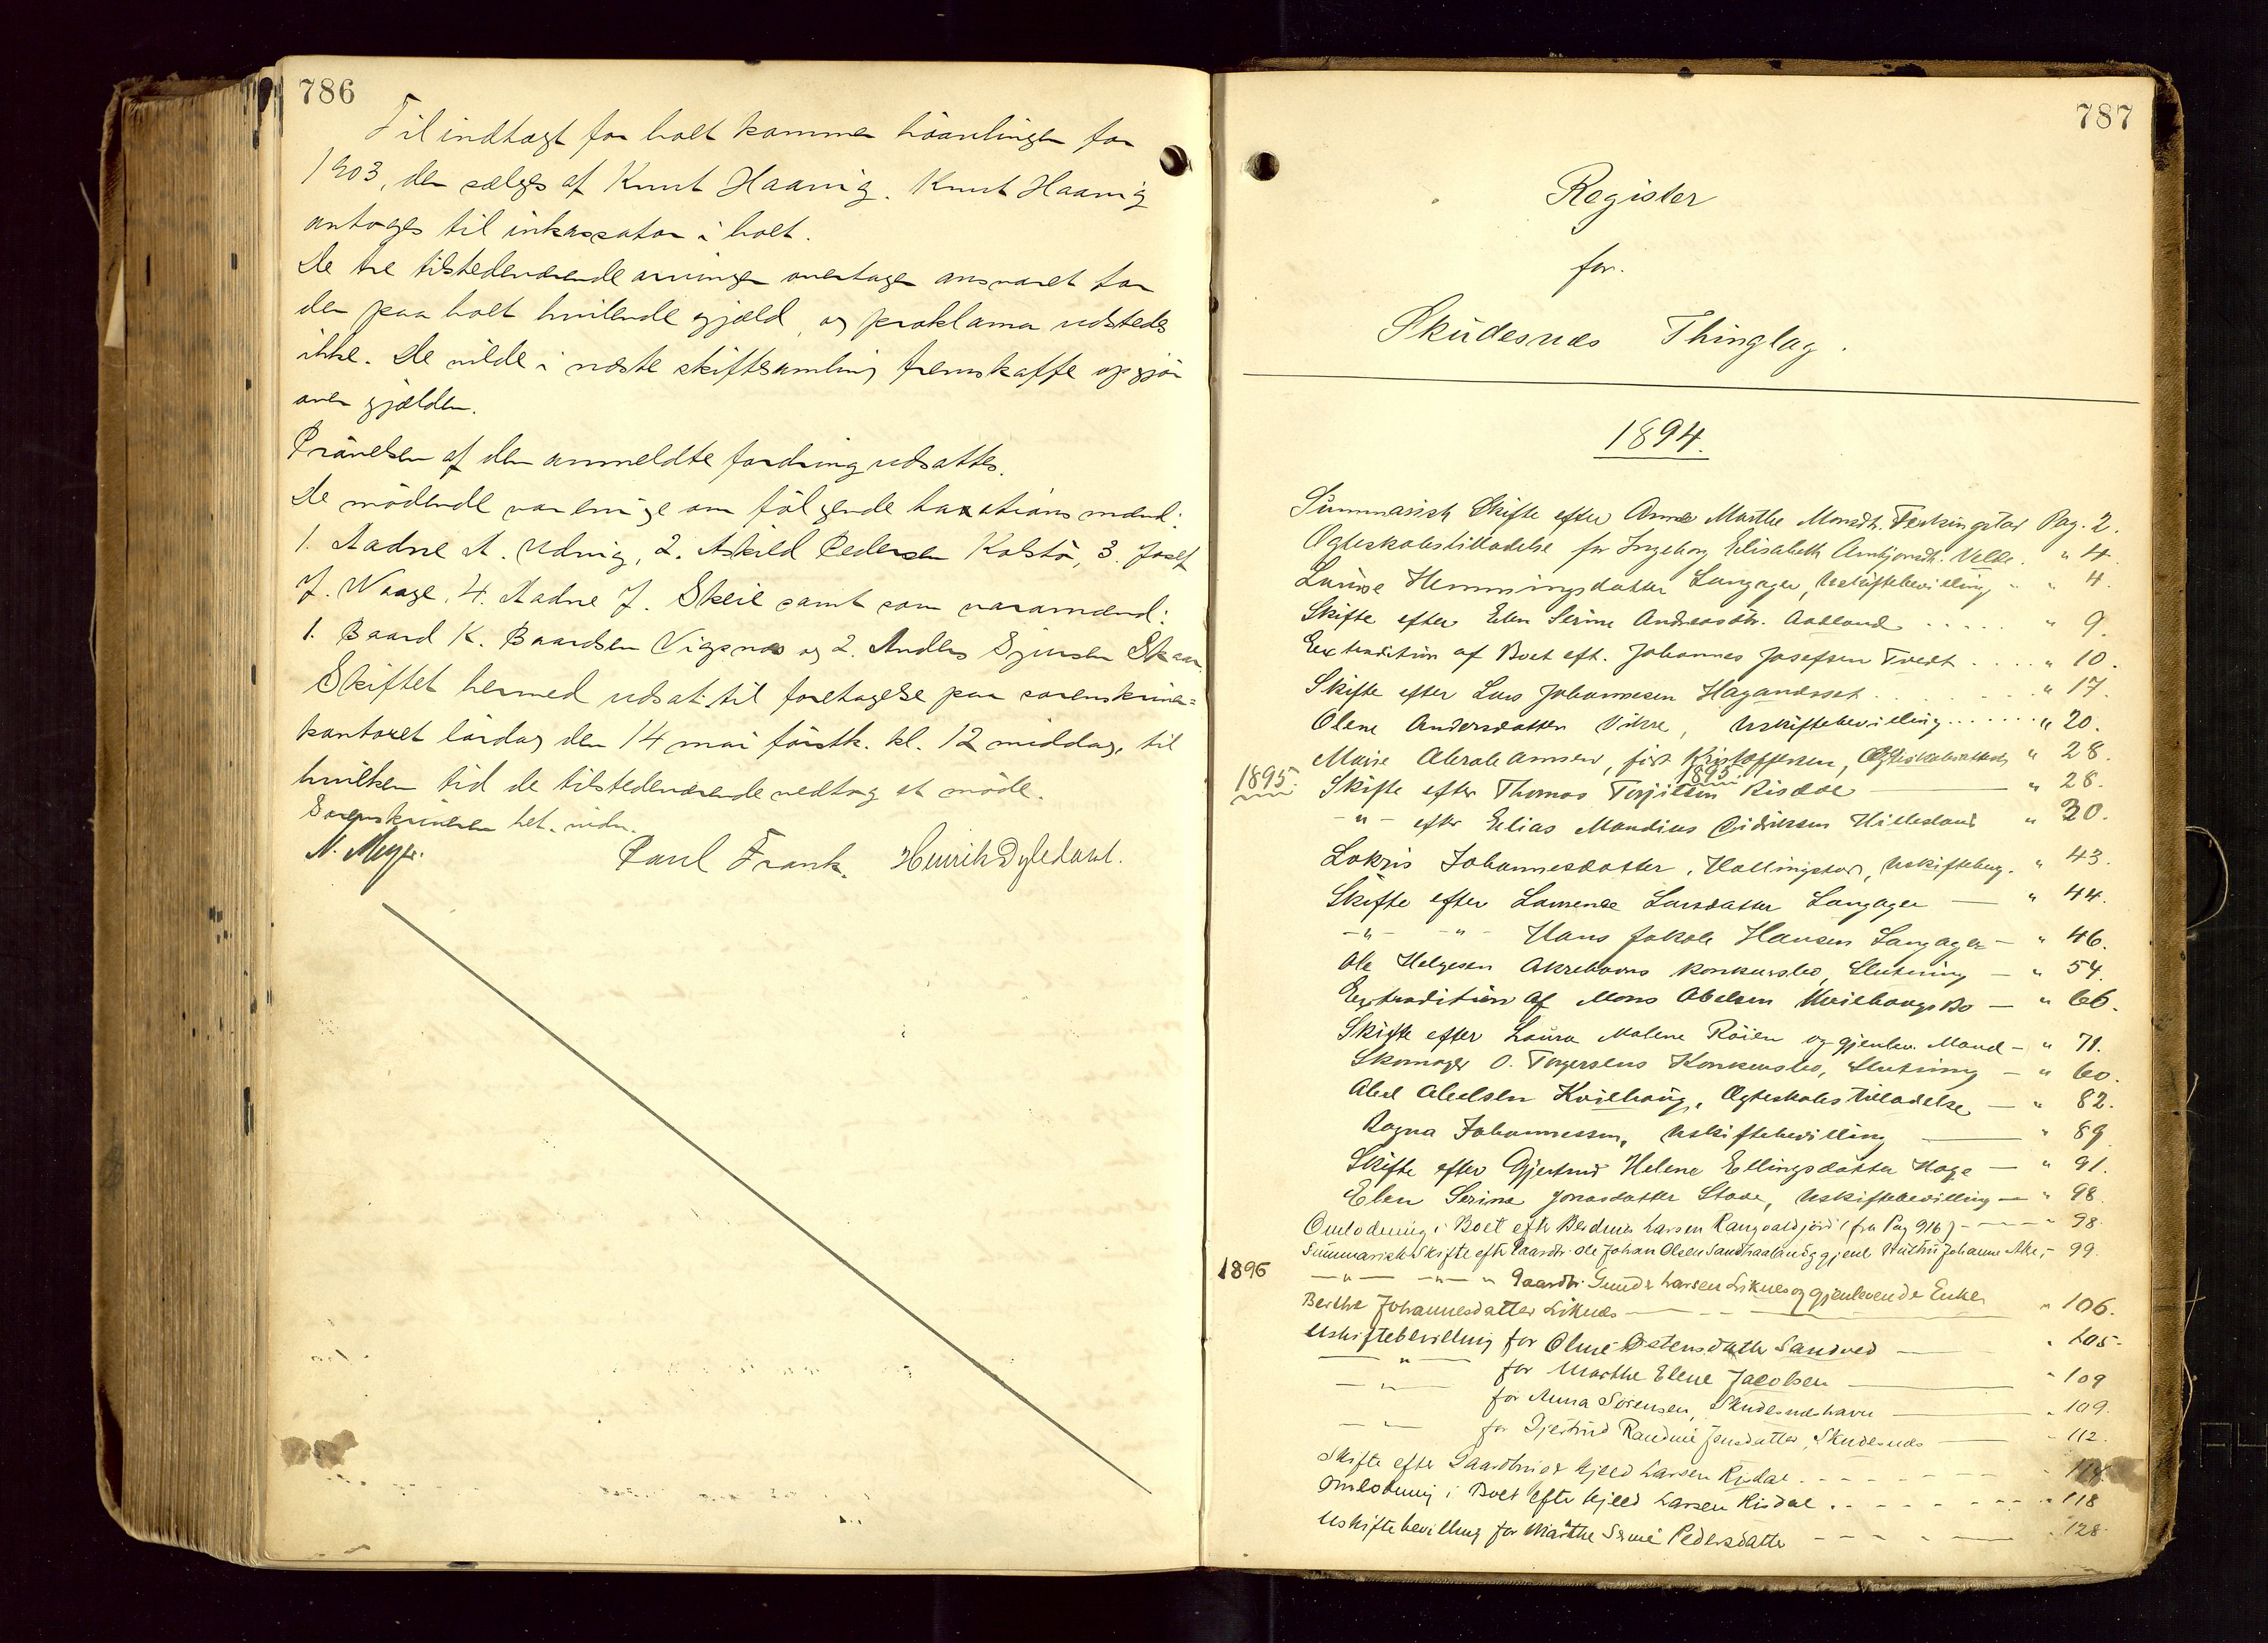 786
Til indtægt for boet kommer höavlingen for
1903, den sælges af Knut Haavig. Knut Haavig
antoges til inkassator i boet.
De tre tilstedeværende arvinger overtager ansvaret for
den paa boet hvilende gjæld, og proklama udstedes
ikke. De vilde i næste skiftesamling fremskaffe opgjör
over gjælden.
Prövelsen af den anmeldte fordring udsattes.
De mödende var enige om fölgende taxationsmænd:
1. Aadne A. Udvig, 2. Askild Pedersen Kolstö, 3. Josef
J. Waage, 4. Aadne J. Skeie samt som varamænd:
1. Baard K. Baardsen Vigsnæs og 2. Anders Sjursen Skaar
Skiftet hermed udsat til foretagelse paa sorenskriver-
kontoret lördag den 14 mai förstk. kl. 12 middag, til
hvilken tid de tilstedeværende vedtog at möde.
Sorenskriveren bet. vidn.
N. Meyer. Paul Frank. Henrik
787
Register
for
Skudesnæs Thinglag.
1894.
Summarisk Skifte efter Anne Marthe Monsdtr. Ferkingstad Pag. 2.
Ægteskabstilladelse for Ingeborg Elisabeth Arnbjørnsdtr. Velle. " 4.
Lovise Hemmingsdatter Langager, Uskiftebevilling " 4.
Skifte efter Elen Serine Andreasdtr. Aadland ..... " 9.
Extradition af Boet eft. Johannes Josefsen Tvedt .... " 10.
Skifte efter Lars Johannesen Haganæsset ..... " 17.
Olene Andersdatter Vikre, Uskiftebevilling ...... " 20.
Maire Abrahamsen, født Kristoffersen, Ægteskabsattest " 28.
1895. Skifte efter Thomas Terjesen 1895 Risdal — " 28.
- " - efter Elias Mandius Didriksen Hillesland " 30.
Johannesdatter, Hallingstad, Uskiftebevg. " 43.
Skifte efter Laurense Larsdatter Langager — " 44.
- " - - " - Hans Jakob Hansen Langager — " 46.
Ole Helgesen Akrehavns Konkursbo, Slutning — " 54.
Extradition af Mons Abelsen Kvilhaugs Bo — " 66.
Skifte efter Laura Malene Röien og gjenlev. Mand — " 71.
Skomager O. Torgersens Konkursbo, Slutning — " 60.
Abel Abelsen Kvilhaug, Ægteskabstilladelse — " 82.
Ragna Johannessen, Uskiftebevilling — " 89
Skifte efter Gjertrud Helene Ellingsdatter Hoge — " 91.
Elen Serine Jonasdatter Stave, Uskiftebevilling — " 98.
Omlodning i Boet efter Larsen Rangvaldsjord (fra Pag 916) — " 98.
Summarisk Skifte efter Gaardbr. Ole Johan Olsen Sandhaaland og gjenl. Hustru Johanne — 99.
1896 — " — — " — " Gaardbr. Gunder Larsen Liknes og gjenlevende Enke
Berthe Johannesdatter Liknes — " 106.
Uskiftebevilling for Oline Østensdatter Sandved — " 105.
— " — for Marthe Elene Jacobsen — " 109
— " — for Anna Sörensen, Skudesneshavn — " 109.
— " — for Gjertrud Randine Jensdatter, Skudesnæs — " 112.
Skifte efter Gaardbruger Kjeld Larsen Risdal. — " 114.
Omlodning i Boet efter Kjeld Larsen Risdal. — " 118
Uskiftebevilling for Marthe Serine Pedersdatter — " 128.